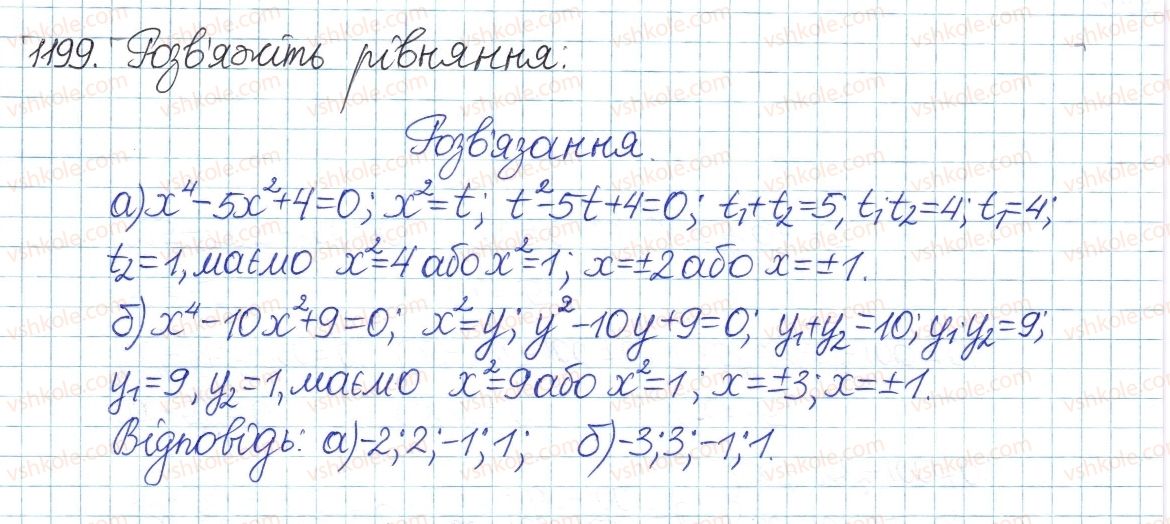 1199. Розв'яжіть рівняння:
Розв'язання.
а) x⁴-5x²+4=0; x²=t; t²-5t+4=0; t₁+t₂=5; t₁·t₂=4; t₁=4;
t₂=1, маємо x²=4 або x²=1; x=±2 або x=±1.
б) x⁴-10x²+9=0; x²=y; y²-10y+9=0; y₁+y₂=10; y₁·y₂=9;
y₁=9, y₂=1, маємо x²=9 або x²=1; x=±3; x=±1.
Відповідь: а) -2; 2; -1; 1; б) -3; 3; -1; 1.